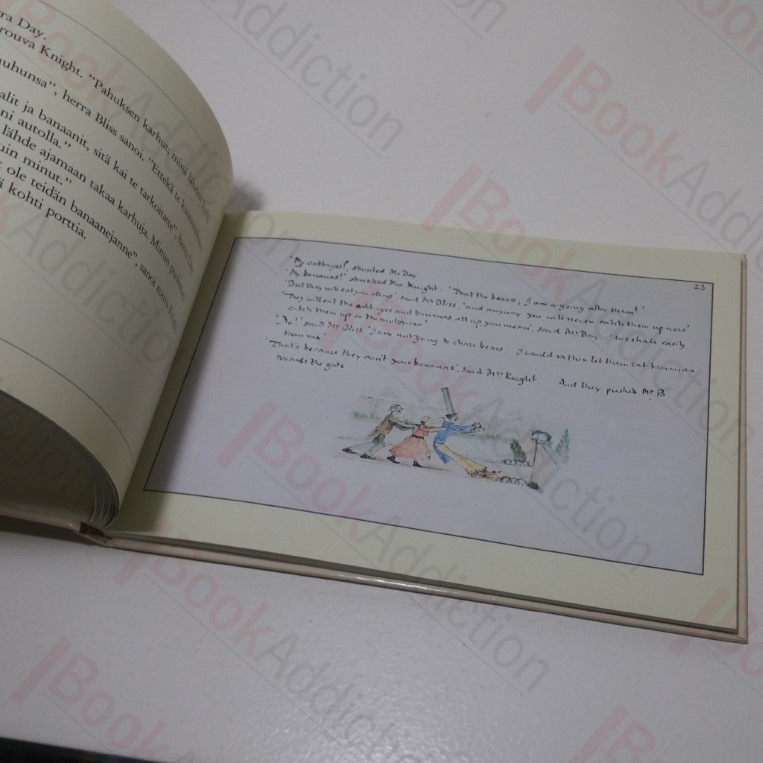 ra Day.
rouva Knight. "Pahuksen karhut, minä lähden
uhunsa", herra Bliss sanoi. "Ettekä te
alit ja banaanit, sitä kai te tarkoitatte",
ni autolla."
lähde ajamaan takaa karhuja. Minun
uin minut."
ole teidän banaanejanne", sanoi rouva Knight.
i kohti porttia.
23
'My cabbages!', shouted Mr Day.
'My bananas!' shrieked Mrs Knight. 'Drat the bears, I am a going after them!'
'But they will eat you all up', said Mr Bliss, 'and anyway you will never catch them up now'
'They will eat the cabbages and bananas all up you mean', said Mr Day. 'We shall easily
catch them up in the motor-car'
'No!' said Mr Bliss 'I am not going to chase bears. I would rather let them eat bananas
than me
'That's because they ain't your bananas', said Mrs Knight. And they pushed Mr. B.
towards the gate
BookAddiction
BookAddiction
BookAddiction
BookAddiction
BookAddiction
BookAddiction
BookAddiction